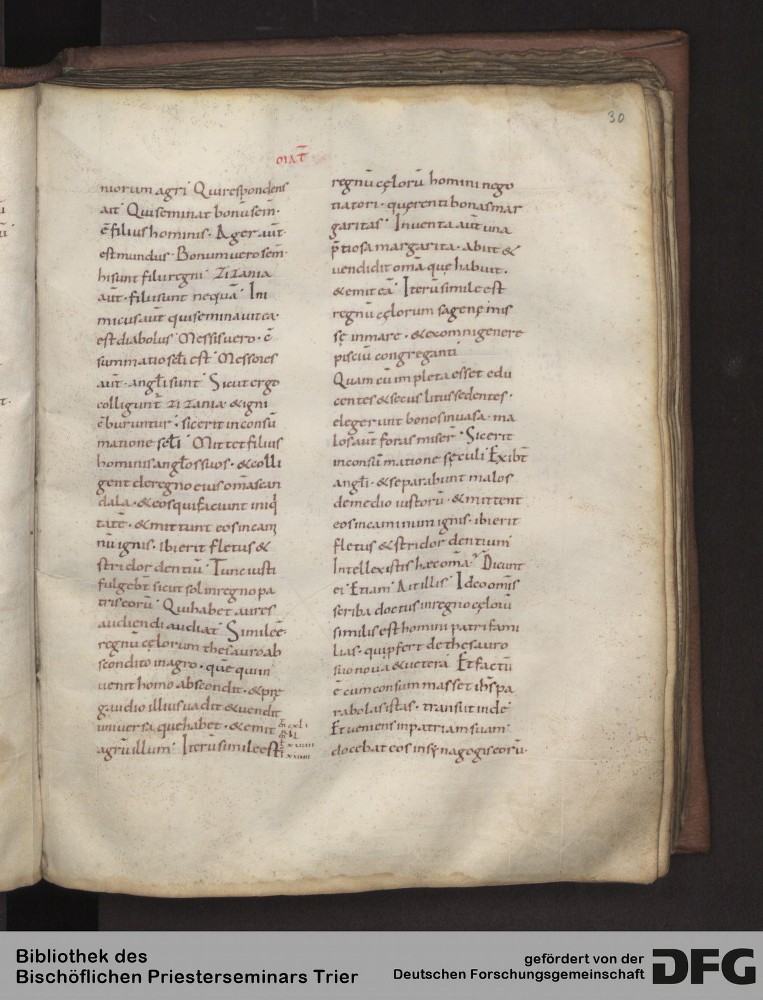 30
MAT̄
niorum agri Qui respondens
ait Qui seminat bonū sem̄·
ē filius hominis· Ager aut̄·
est mundus· Bonum vero sem̄·
hi sunt filii regni· Zizania
aut̄· filii sunt nequā· Ini
micus aut̄ qui seminavit ea·
est diabolus· Messis vero· ē
summatio sc̄li est· Messores
aut̄· angłi sunt· Sicut ergo
colligunt̄ zizania· & igni
cōburuntur· sic erit in consū
matione sc̄li· Mittet filius
hominis angłos suos· & colli
gent de regno eius om̄a scan
dala· & eos qui faciunt iniq̇
tatē· & mittunt eos in cam
nū ignis· ibi erit fletus &
stridor dentiū· Tunc iusti
fulgebt̄ sicut sol in regno pa
tris eorū· Qui habet aures
audiendi audiat· Simile ē·
regnū cęlorum thesauro ab
scondito in agro· quē qui in
venit homo abscondit· & prę
gaudio illius vadit & vendit
universa quę habet· & emit
agrū illum· Iterū simile est
regnū cęlorū homini nego
tiatori· quęrenti bonas mar
garitas· Inventa aut̄ una
p̄tiosa margarita· abiit &
vendidit om̄a quę habuit·
& emit eā· Iterū simile est
regnū cęlorum sagenę mis
sę in mare· & ex omni genere
pisciū congreganti·
Quam cū impleta esset edu
centes & secus litus sedentes·
elegerunt bonos in vasa· ma
los aut̄ foras miser̄· Sic erit
in consūmatione sęculi· Exibt̄
angłi· & separabunt malos
de medio iustorū· & mittent
eos in caminum ignis· ibi erit
fletus & stridor dentium·
Intellexistis hęc om̄a? Dicunt
ei· Etiam· Ait illis· Ideo om̄is
scriba doctus in regno cęlorū
similis est homini patri fami
lias· qui p̱fert de thesauro
suo nova & vetera· Et factū
ē cum consummasset ih̄s pa
rabolas istas· transiit inde·
Et veniens in patriam suam·
docebat eos in synagogis eorū·
Bibliothek des
Bischöflichen Priesterseminars Trier
gefördert von der
Deutschen Forschungsgemeinschaft
DFG